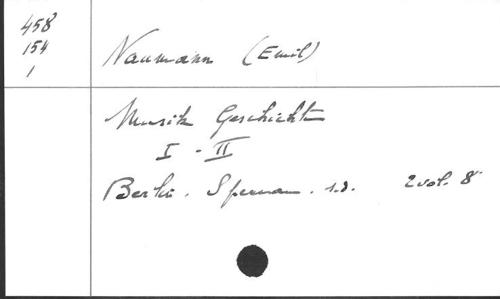 458
154
1
Naumann (Emil)
Musik Geschichte
I - II
Berlin. Speman. s.d. 2 vol. 8°